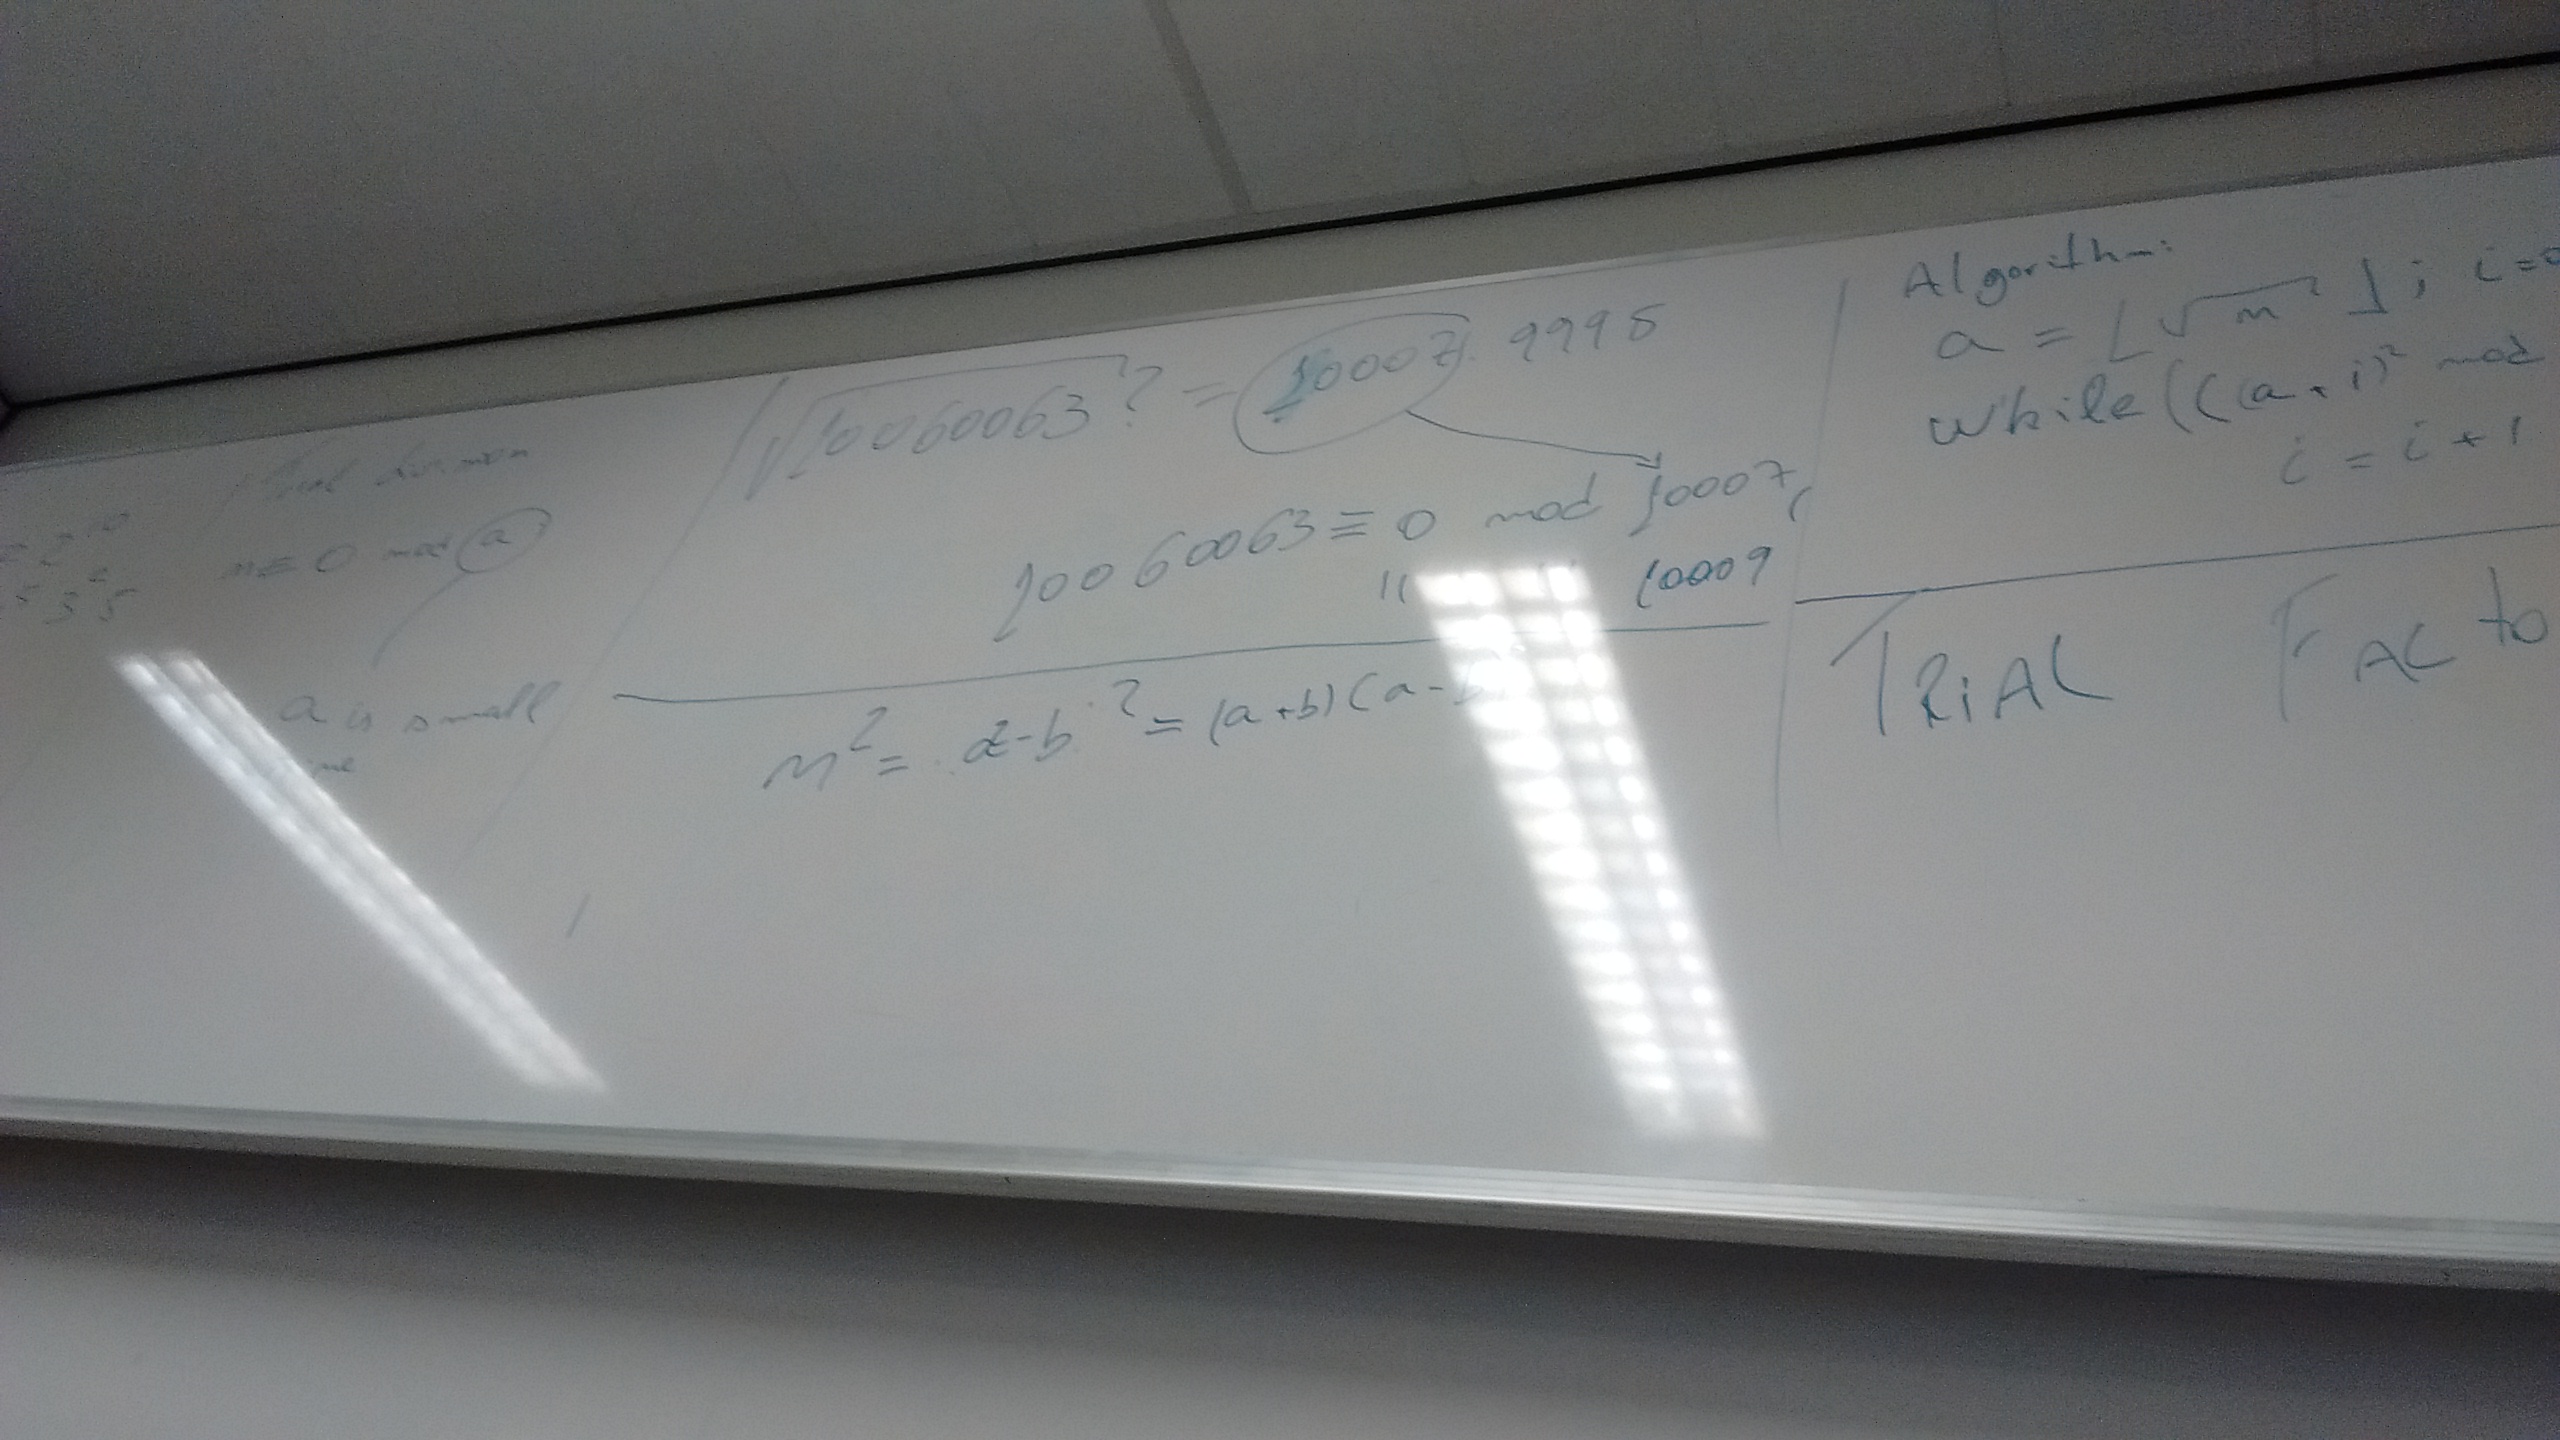 division
m ≡ 0 mod a
a is small
√10060063? = 10007.9995
10060063 ≡ 0 mod 10007,
" " 10009
m² = a²-b² = (a+b)(a-
Algorithm:
a = ⌊√m⌋; i=0
while(((a+i)² mod
i = i+1
TRIAL FACto